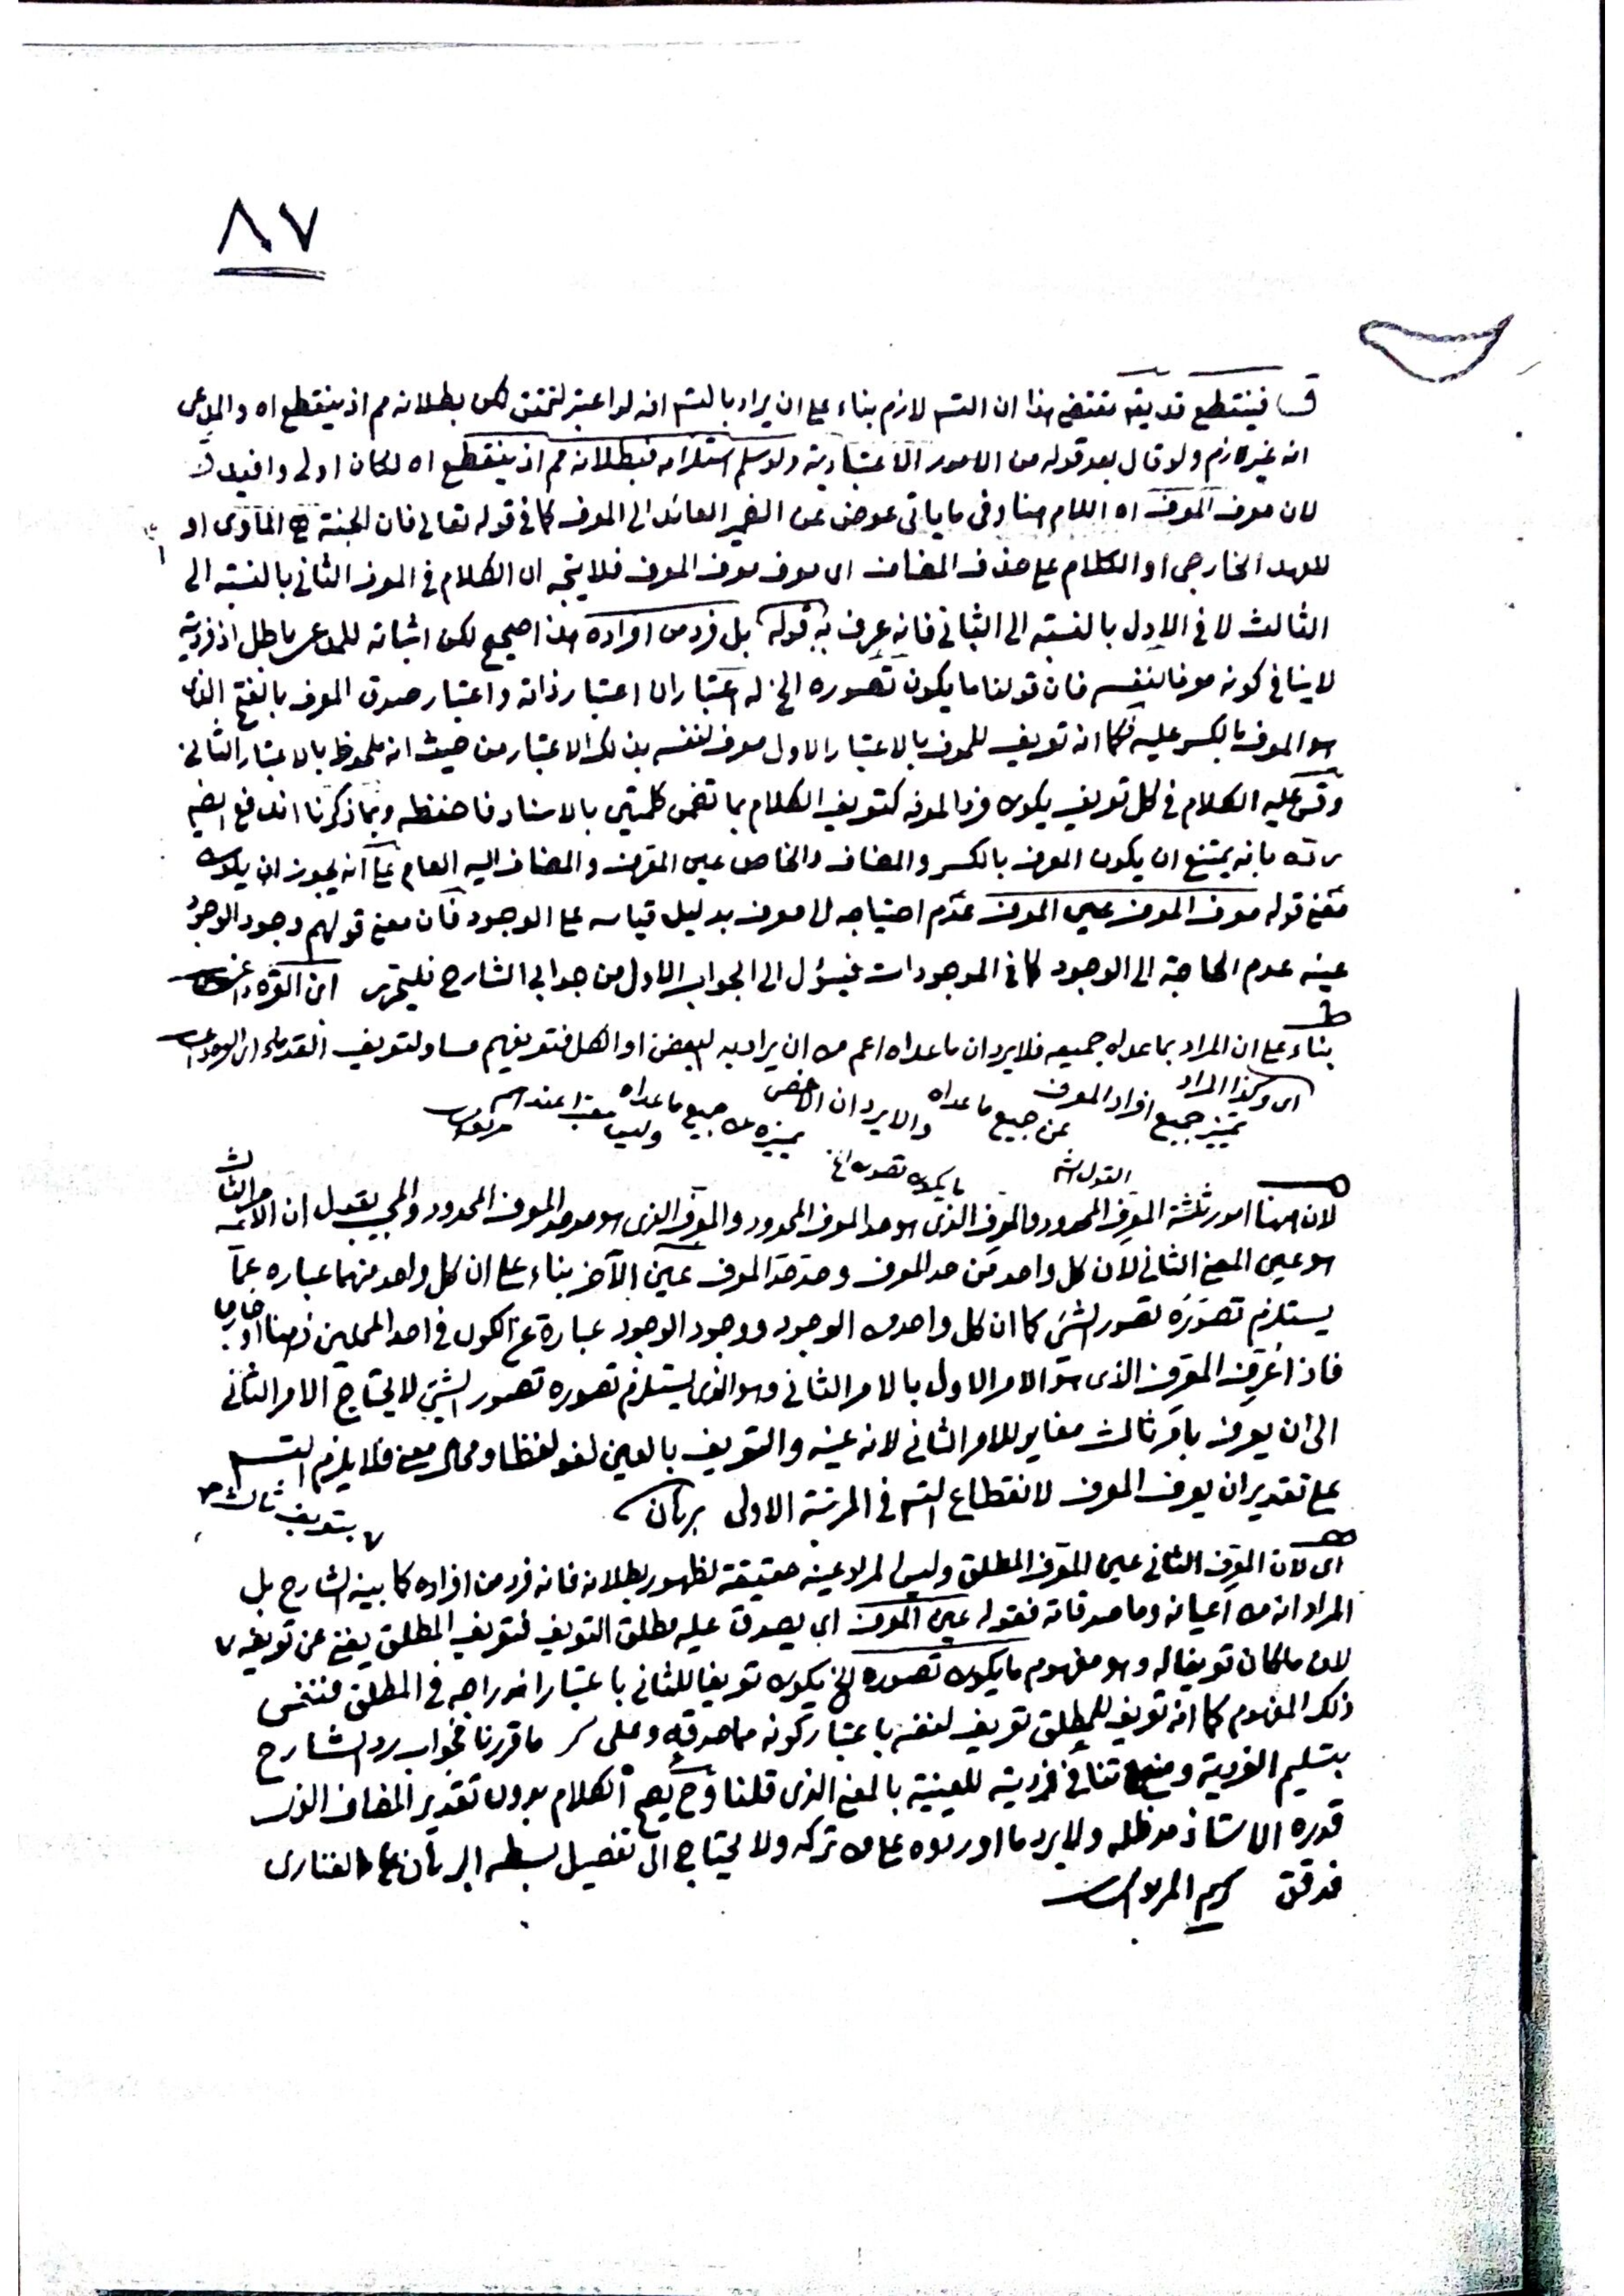 ٨٧
فينقطع قد يقه مقتضى هذا ان التس لازم بناء على ان يراد بالتس انه لو اعتبر لتحقق لكن بطلانه مم اذ ينقطع اه والمدعى
انه غير لازم ولو قال بعد قوله من الامور الاعتبارية ولو سلم استلزامه فبطلانه مم اذ ينقطع اه لكان اولى وافيد
لان معرف المعرف اه اللام هنا وفى ما ياتى عوض عن الضمير العائد الى المعرف كما فى قوله تعالى فان الجنة هى المأوى او
للعهد الخارجى او الكلام على حذف المضاف اى معرف معرف المعرف فلا يتجه ان الكلام فى المعرف الثانى بالنسبة الى
الثالث لا فى الاول بالنسبة الى الثانى فانه عرف به قوله بل فرد من افراده هذا صحيح لكن اثباته للمدعى باطل اذ فرديته
لا ينافى كونه معرفا لنفسه فان قولنا ما يكون تصوره الخ له اعتباران اعتبار ذاته واعتبار صدق المعرف بالفتح الذى
هو المعرف بالكسر عليه فكما انه تعريف للمعرف بالاعتبار الاول معرف لنفسه بذلك الاعتبار من حيث انه ملحوظ بالاعتبار الثانى
وقس عليه الكلام فى كل تعريف يكون فردا لمعرفه كتعريف الكلام بما تضمن كلمتين بالاسناد فاحفظه وبما ذكرنا اندفع ايضا
رده بانه يمتنع ان يكون المعرف بالكسر والمضاف والخاص عين المعرف والمضاف اليه العام على انه يجوز ان يكون
معنى قوله معرف المعرف عين المعرف عدم احتياجه الى معرف بدليل قياسه على الوجود فان معنى قولهم وجود الوجود
عينه عدم الحاجة الى الوجود كما فى الموجودات فيؤل الى الجواب الاول من جوابى الشارح فليتحرر ابن القره داغى
بناء على ان المراد بما عداه جميعه فلا يرد ان ما عداه اعم من ان يراد به البعض او الكل فتعريفهم مساو لتعريف القدماء
اى وكذا المراد تميز جميع افراد المعرف عن جميع ما عداه والا يرد ان الاخص يميزه عن جميع ما عداه وليس معتبرا عندهم
القول الش ما يكون تصوره الخ
لان ههنا امور ثلثة المعرف المحدود والمعرف الذى هو حد المعرف المحدود والمعرف الذى هو حد حد المعرف المحدود والمجيب يقول ان الامر الثالث
هو عين المعنى الثانى لان كل واحد من حد المعرف وحد حد المعرف عين الآخر بناء على ان كل واحد منهما عبارة عما
يستلزم تصوره تصور الشئ كما ان كل واحد من الوجود ووجود الوجود عبارة عن الكون فى احد المحلين ذهنا او خارجا
فاذا عرف المعرف الذى هو الامر الاول بالامر الثانى وهو الذى يستلزم تصوره تصور الشئ لا يحتاج الامر الثانى
الى ان يعرف بامر ثالث مغاير للامر الثانى لانه عينه والتعريف بالعين لغو لفظا ومحال معنى فلا يلزم التس
على تقدير ان يعرف المعرف لانقطاع التس فى المرتبة الاولى برهان
بتعريف ثالث
اى لان المعرف الثانى عين المعرف المطلق وليس المراد عينه حقيقة لظهور بطلانه فانه فرد من افراده كما بينه الشارح بل
المراد انه من اعيانه وما صدقاته فقوله عين المعرف اى يصدق عليه مطلق التعريف فتعريف المطلق يغنى عن تعريفه
لان ما كان تعريفا له وهو مفهوم ما يكون تصوره الخ يكون تعريفا للثانى باعتبار اندراجه فى المطلق فنفس
ذلك المفهوم كما انه تعريف للمطلق تعريف لنفسه باعتبار كونه ما صدقه وعلى ما قررنا فجواب رد الشارح
بتسليم الفردية ومنع تنافى فردية للعينية بالمعنى الذى قلنا وح يصح الكلام بدون تقدير المضاف الذى
قدره الاستاذ مد ظله ولا يرد ما اوردوه على من تركه ولا يحتاج الى تفصيل بسطه البرهان على الفنارى
فدقق